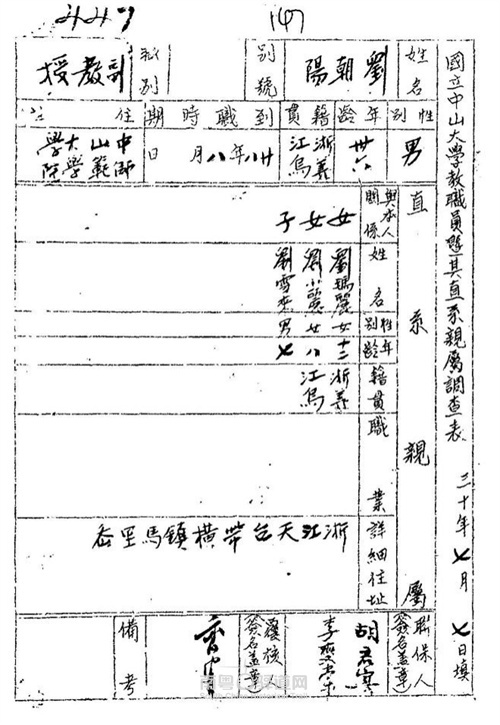 447
(4)
國立中山大學教職員暨其直系親屬調查表
三十年七月七日填
姓名
劉朝陽
別號
職別
副教授
性別
男
年齡
卅六
籍貫
浙江義烏
到職時期
廿八年八月 日
住址
中山大學師範學院
直系親屬
與本人關係
女
女
子
姓名
劉瑪麗
劉小麗
劉雪來
性別
女
女
男
年齡
十二
八
七
籍貫
浙江義烏
職業
詳細住址
浙江天台
橫鎮馬
聯保人簽名蓋章
胡君
李
覆核簽名蓋章
備考